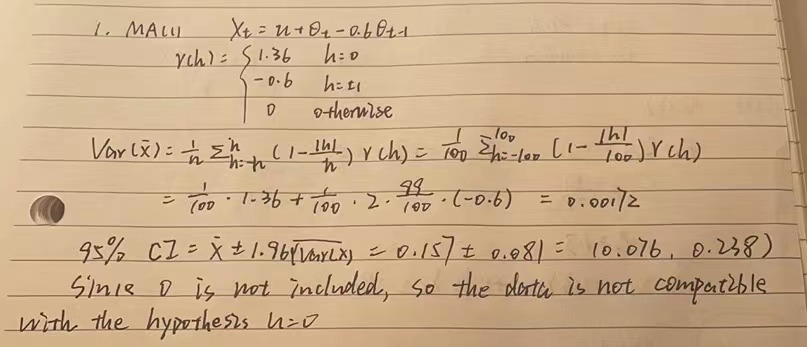 1. MA(1) Xt = u + θt - 0.6θt-1
γ(h) = { 1.36 h=0
-0.6 h=±1
0 otherwise
Var(x̄) = 1/n Σ_{h=-n}^{n} (1 - |h|/n) γ(h) = 1/100 Σ_{h=-100}^{100} (1 - |h|/100) γ(h)
= 1/100 · 1.36 + 1/100 · 2 · 99/100 · (-0.6) = 0.00172
95% CI = x̄ ± 1.96√Var(x) = 0.157 ± 0.081 = (0.076, 0.238)
Since 0 is not included, so the data is not compatible
with the hypothesis u=0